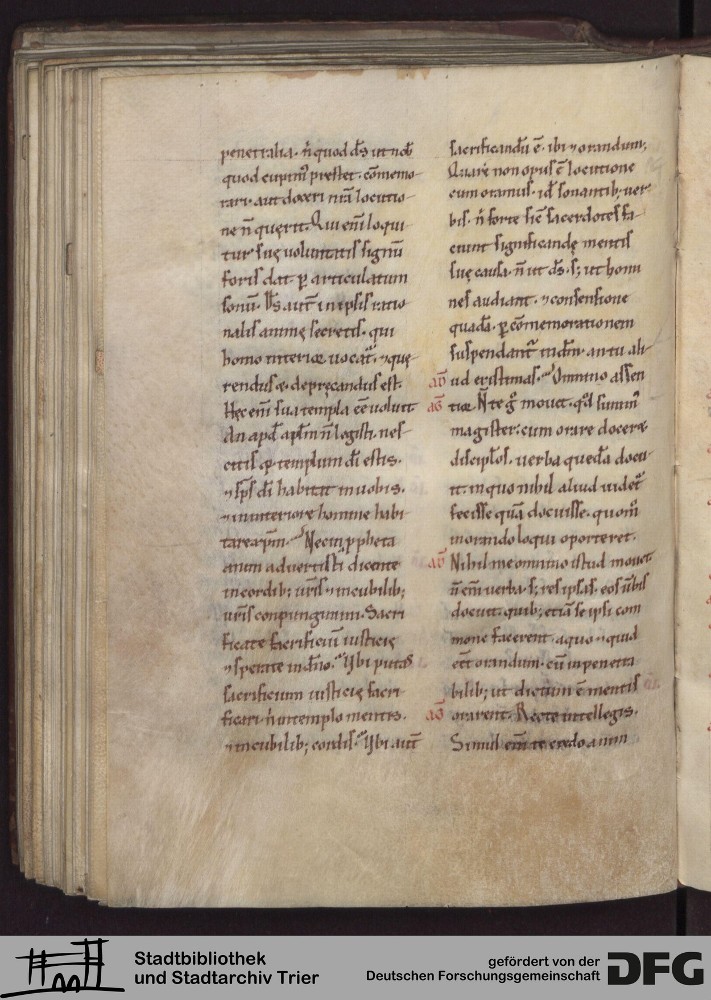 penetralia. n̄ quod d̄s ut nob̄
quod cupim᷒ prestet. cōmemo
rari. aut doceri nr̄a locutio-
ne n̄ querit. Qui eni᷒ loqui
tur suę voluntatis signū
foris dat. p̄ articulatum
sonū. D̄s aut̄ in ipsis ratio
nalis animę secretis. qui
homo interior uocat᷒. ⁊ quę-
rendus e. deprecandus est.
Hęc eni᷒ sua templa ēē voluit
An apd̄ aplm̄ n̄ legisti. nes-
citis qa templum dī estis.
⁊ sps̄ dī habitat in uobis.
⁊ in interiore homine habi
tare xpm̄. Nec in ppheta
animaduertisti dicente
in cordib; ur̄is ⁊ in cubilib;
ur̄is conpungimini. Sacri
ficate sacrificiū iusticię
⁊ sperate in dn̄o. Vbi putas
sacrificium iusticię sacri
ficari. n̄ in templo mentis.
⁊ in cubilib; cordis. Vbi aut̄
sacrificandū ē. ibi ⁊ orandum.
Quare non opus ē locutione
cum oramus. id ē sonantib; ver-
bis. n̄ forte sic̄ sacerdotes fa-
ciunt significandę mentis
suę causa. n̄ ut d̄s. s; ut homi
nes audiant. ⁊ consensione
quada᷒. p̄ cōmemorationem
suspendant᷒ in dm̄. an tu ali-
ad̄ ud existimas. Omnino assen
aḡ tior. N̄ te g̊ mouet. qd̄ summ᷒
magister. cum orare doceret
discipl̄os. uerba queda᷒ docu-
it. in quo nihil aliud uidet᷒
fecisse qua᷒ docuisse. quom̊
in orando loqui oporteret.
ad̄ Nihil me omnino istud mouet.
n̄ eni᷒ uerba. s; res ipsas eos ūbis
docuit. quib; etia᷒ se ipsi com
mone facerent. a quo ⁊ quid
eēt orandum. cū in penetra
bilib; ut dictum ē mentis
aḡ orarent. Recte intellegis.
Simul eni᷒ te credo anim
Stadtbibliothek
und Stadtarchiv Trier
gefördert von der
Deutschen Forschungsgemeinschaft DFG